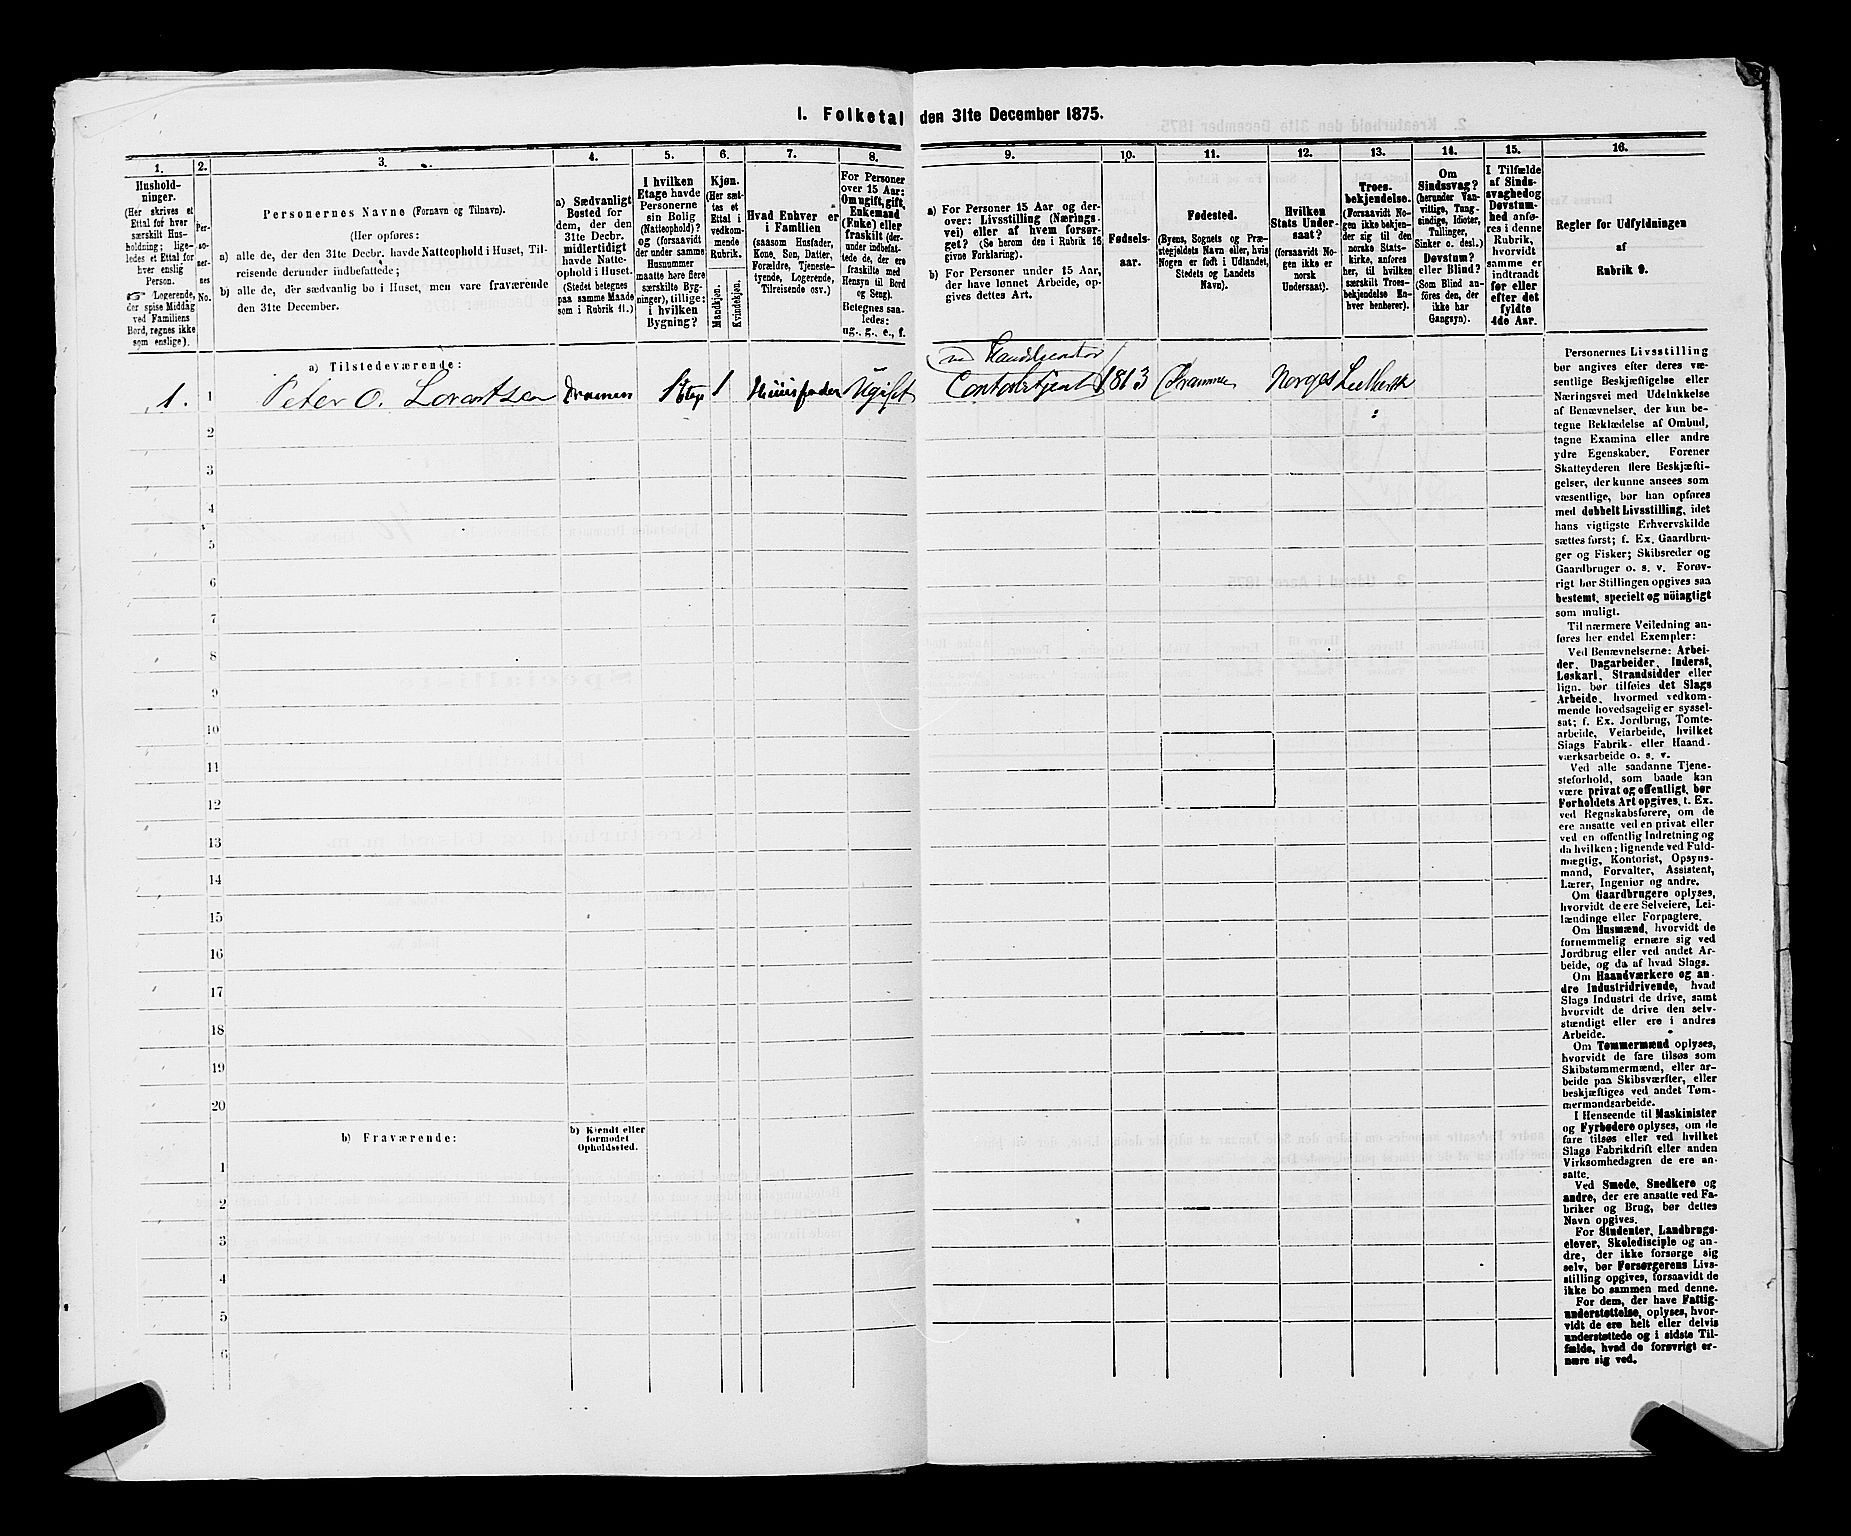 I. Folketal den 31te December 1875.
1.
Hushold-
ninger.
(Her skrives et
Ettal for hver
særskilt Hus-
holdning; lige-
ledes et Ettal for
hver enslig
Person.
☞ Logerende,
der spise Middag
ved Familiens
Bord, regnes ikke
som enslige).
2.
Per-
so-
ner-
nes
No.
3.
Personernes Navne (Fornavn og Tilnavn).
(Her opføres:
a) alle de, der den 31te Decbr. havde Natteophold i Huset, Til-
reisende derunder indbefattede;
b) alle de, der sædvanlig bo i Huset, men vare fraværende
den 31te December.
4.
a) Sædvanligt
Bosted for
dem, der den
31te Decbr.
midlertidigt
havde Natte-
ophold i Huset.
(Stedet betegnes
paa samme Maade
som i Rubrik 11.)
5.
I hvilken
Etage havde
Personerne
sin Bolig
(Natteophold)?
og (forsaavidt
der under samme
Husnummer
maatte høre flere
særskilte Byg-
ninger), tillige:
i hvilken
Bygning?
6.
Kjøn.
(Her sæt-
tes et
Ettal i
vedkom-
mende
Rubrik.
Mandkjøn.
Kvindekjøn.
7.
Hvad Enhver er
i Familien
(saasom Husfader,
Kone, Søn, Datter,
Forældre, Tjeneste-
tyende, Logerende,
Tilreisende osv.)
8.
For Personer
over 15 Aar:
Om ugift, gift,
Enkemand
(Enke) eller
fraskilt (der-
under indbefat-
tede de, der ere
fraskilte med
Hensyn til Bord
og Seng).
Betegnes saa-
ledes:
ug., g., e., f.
9.
a) For Personer 15 Aar og der-
over: Livsstilling (Nærings-
vei) eller af hvem forsør-
get? (Se herom den i Rubrik 16
givne Forklaring).
b) For Personer under 15 Aar,
der have lønnet Arbeide, op-
gives dettes Art.
10.
Fødsels-
aar.
11.
Fødested.
(Byens, Sognets og Præ-
stegjeldets Navn eller, hvis
Nogen er født i Udlandet,
Stedets og Landets
Navn).
12.
Hvilken
Stats Under-
saat?
(forsaavidt No-
gen ikke er
norsk
Undersaat).
13.
Troes-
bekjendelse.
(Forsaavidt No-
gen ikke bekjen-
der sig til den
norske Stats-
kirke, anføres
her, til hvilken
særskilt Troes-
bekjendelse En-
hver henhører).
14.
Om
Sindssvag?
(herunder Van-
vittige, Tung-
sindige, Idioter,
Tullinger,
Sinker o. desl.)
Døvstum?
eller Blind?
(Som Blind an-
føres den, der
ikke har
Gangsyn).
15.
I Tilfælde
af Sinds-
svaghed og
Døvstum-
hed anfø-
res i denne
Rubrik,
hvorvidt
samme er
indtraadt
før eller
efter det
fyldte
4de Aar.
16.
Regler for Udfyldningen
af
Rubrik 9.
a) Tilstedeværende:
1. 1 Peter O. Lorentsen Dramen 1 Etag 1 Huusfader Ugift Contorbetjent 1813 Drammen Norges Luthersk
2
3
4
5
6
7
8
9
10
11
12
13
14
15
16
17
18
19
20
b) Fraværende:
b) Kjendt eller
formodet
Opholdssted.
1
2
3
4
5
6
Personernes Livsstilling
bør angives efter deres væ-
sentlige Beskjæftigelse eller
Næringsvei med Udelukkelse
af Benævnelser, der kun be-
tegne Beklædelse af Ombud,
tagne Examina eller andre
ydre Egenskaber. Forener
Skatteyderen flere Beskjæfti-
gelser, der kunne ansees som
væsentlige, bør han opføres
med dobbelt Livsstilling, idet
hans vigtigste Erhvervskilde
sættes først; f. Ex. Gaardbru-
ger og Fisker; Skibsreder og
Gaardbruger o. s. v. Forøv-
rigt bør Stillingen opgives saa
bestemt, specielt og nöiagtigt
som muligt.
Til nærmere Veiledning an-
føres her endel Exempler:
Ved Benævnelserne: Arbei-
der, Dagarbeider, Inderst,
Løskarl, Strandsidder eller
lign. bør tilføies det Slags
Arbeide, hvormed vedkom-
mende hovedsagelig er syssel-
sat; f. Ex. Jordbrug, Tomte-
arbeide, Veiarbeide, hvilket
Slags Fabrik- eller Haand-
værksarbeide o. s. v.
Ved alle saadanne Tjene-
steforhold, som baade kan
være privat og offentligt, bør
Forholdets Art opgives, t. Ex.
ved Regnskabsførere, om de
ere ansatte ved en privat eller
ved en offentlig Indretning og
da hvilken; lignende ved Fuld-
mægtig, Kontorist, Opsyns-
mand, Forvalter, Assistent,
Lærer, Ingeniør og andre.
Om Gaardbrugere oplyses,
hvorvidt de ere Selveiere, Lei-
lændinge eller Forpagtere.
Om Husmænd, hvorvidt de
fornemmelig ernære sig ved
Jordbrug eller ved andet Ar-
beide, og da af hvad Slags.
Om Haandværkere og an-
dre Industridrivende, hvad
Slags Industri de drive, samt
hvorvidt de drive den selv-
stændigt eller ere i andres
Arbeide.
Om Tømmermænd oplyses,
hvorvidt de fare tilsøs som
Skibstømmermænd, eller ar-
beide paa Skibsværfter, eller
beskjæftiges ved andet Tøm-
mermandsarbeide.
I Henseende til Maskinister
og Fyrbødere oplyses, om de
fare tilsøs eller ved hvilket
Slags Fabrikdrift eller anden
Virksomhedsgren de ere an-
satte.
Ved Smede, Snedkere og
andre, der ere ansatte ved Fa-
briker og Brug, bør dettes
Navn opgives.
For Studenter, Landbrugs-
elever, Skoledisciple og an-
dre, der ikke forsørge sig
selv, bør Forsørgerens Livs-
stilling opgives, forsaavidt de
ikke bo sammen med denne.
For dem, der have Fattig-
understøttelse, oplyses, hvor-
vidt de ere helt eller delvis
understøttede og i sidste Til-
fælde, hvad de forøvrigt er-
nære sig ved.